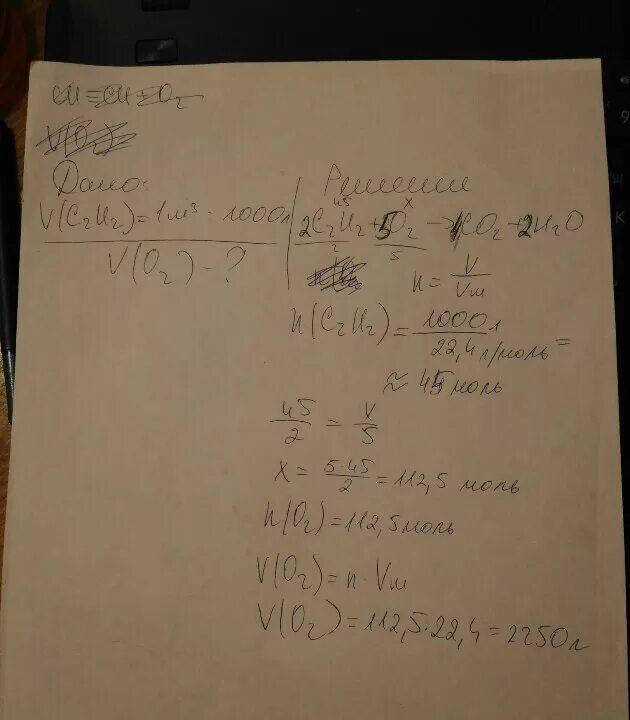 CH≡CH=O₂
V(O₂)
Дано:
V(C₂H₂)=1м³ - 1000л
V(O₂) - ?
Решение
45 x
2C₂H₂+5O₂→4CO₂+2H₂O
2 5
n = V/Vm
n(C₂H₂) = 1000л/22,4 л/моль =
≈ 45 моль
45/2 = x/5
x = 5·45/2 = 112,5 моль
n(O₂)=112,5моль
V(O₂)=n·Vm
V(O₂)=112,5·22,4=2250л